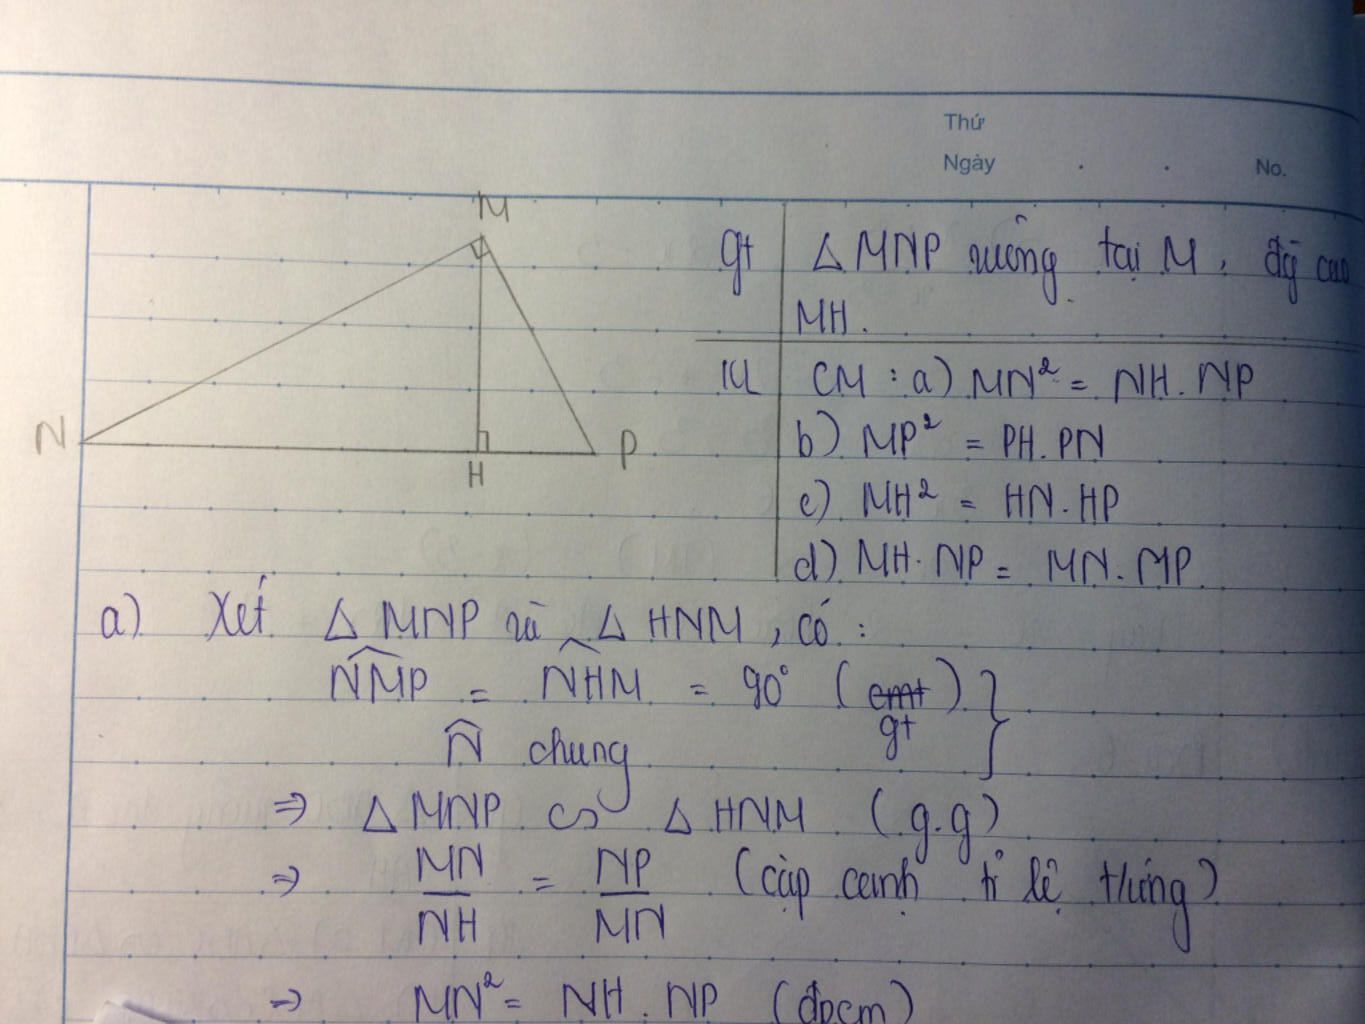 Thứ
Ngày . . No.
M
N
H
P
gt △MNP vuông tại M, đg cao
MH.
KL CM : a) MN² = NH. NP
b) MP² = PH. PN
c) MH² = HN. HP
d) MH. NP = MN. MP
a) Xét △ MNP và △ HNM, có :
N̂M̂P̂ = N̂ĤM̂ = 90° (cmt) }
gt
N̂ chung
⇒ △ MNP ∽ △ HNM (g.g)
⇒ MN/NH = NP/MN (cặp cạnh tỉ lệ t/ứng)
⇒ MN² = NH . NP (đpcm)